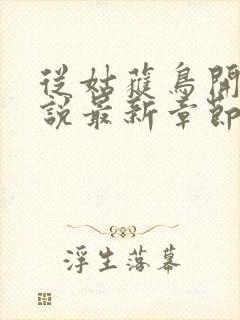 從姑蒦鳥開
說最新章節
浮生落幕